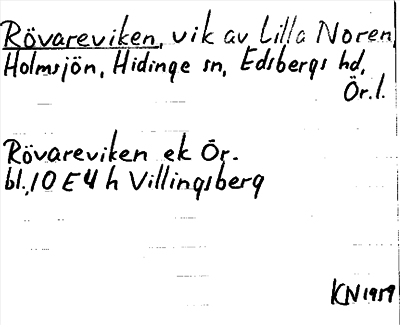 Rövareviken, vik av Lilla Noren,
Holmsjön, Hidinge sn, Edsbergs hd,
Ör.l.
Rövareviken ek Ör.
bl.,10 E 4 h Villingsberg
KN 1959